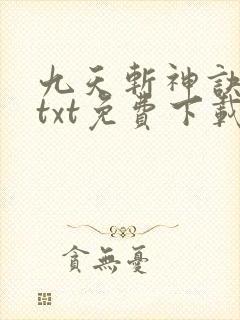 九天斬神訣
txt免費下載
貪無憂